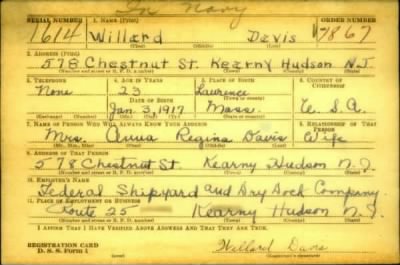 In Navy
SERIAL NUMBER 1. NAME (Print) ORDER NUMBER
1614 Willard Davis 7867
(First) (Middle) (Last)
2. ADDRESS (Print)
578 Chestnut St. Kearny Hudson N.J.
(Number and street or R. F. D. number) (Town) (County) (State)
3. TELEPHONE 4. AGE IN YEARS 5. PLACE OF BIRTH 6. COUNTRY OF CITIZENSHIP
None 23 Lawrence
DATE OF BIRTH (Town or county)
Jan. 3, 1917 Mass. U. S. A.
(Exchange) (No.) (Mo.) (Day) (Yr.) (State or country)
7. NAME OF PERSON WHO WILL ALWAYS KNOW YOUR ADDRESS 8. RELATIONSHIP OF THAT PERSON
Mrs. Anna Regina Davis Wife
(Mr., Mrs., Miss) (First) (Middle) (Last)
9. ADDRESS OF THAT PERSON
578 Chestnut St Kearny Hudson N.J.
(Number and street or R. F. D. number) (Town) (County) (State)
10. EMPLOYER'S NAME
Federal Shipyard and Dry Dock Company.
11. PLACE OF EMPLOYMENT OR BUSINESS
Route 25 Kearny Hudson N.J.
(Number and street or R. F. D. number) (Town) (County) (State)
I AFFIRM THAT I HAVE VERIFIED ABOVE ANSWERS AND THAT THEY ARE TRUE.
REGISTRATION CARD
D. S. S. Form 1 Willard Davis
(Registrant's signature)